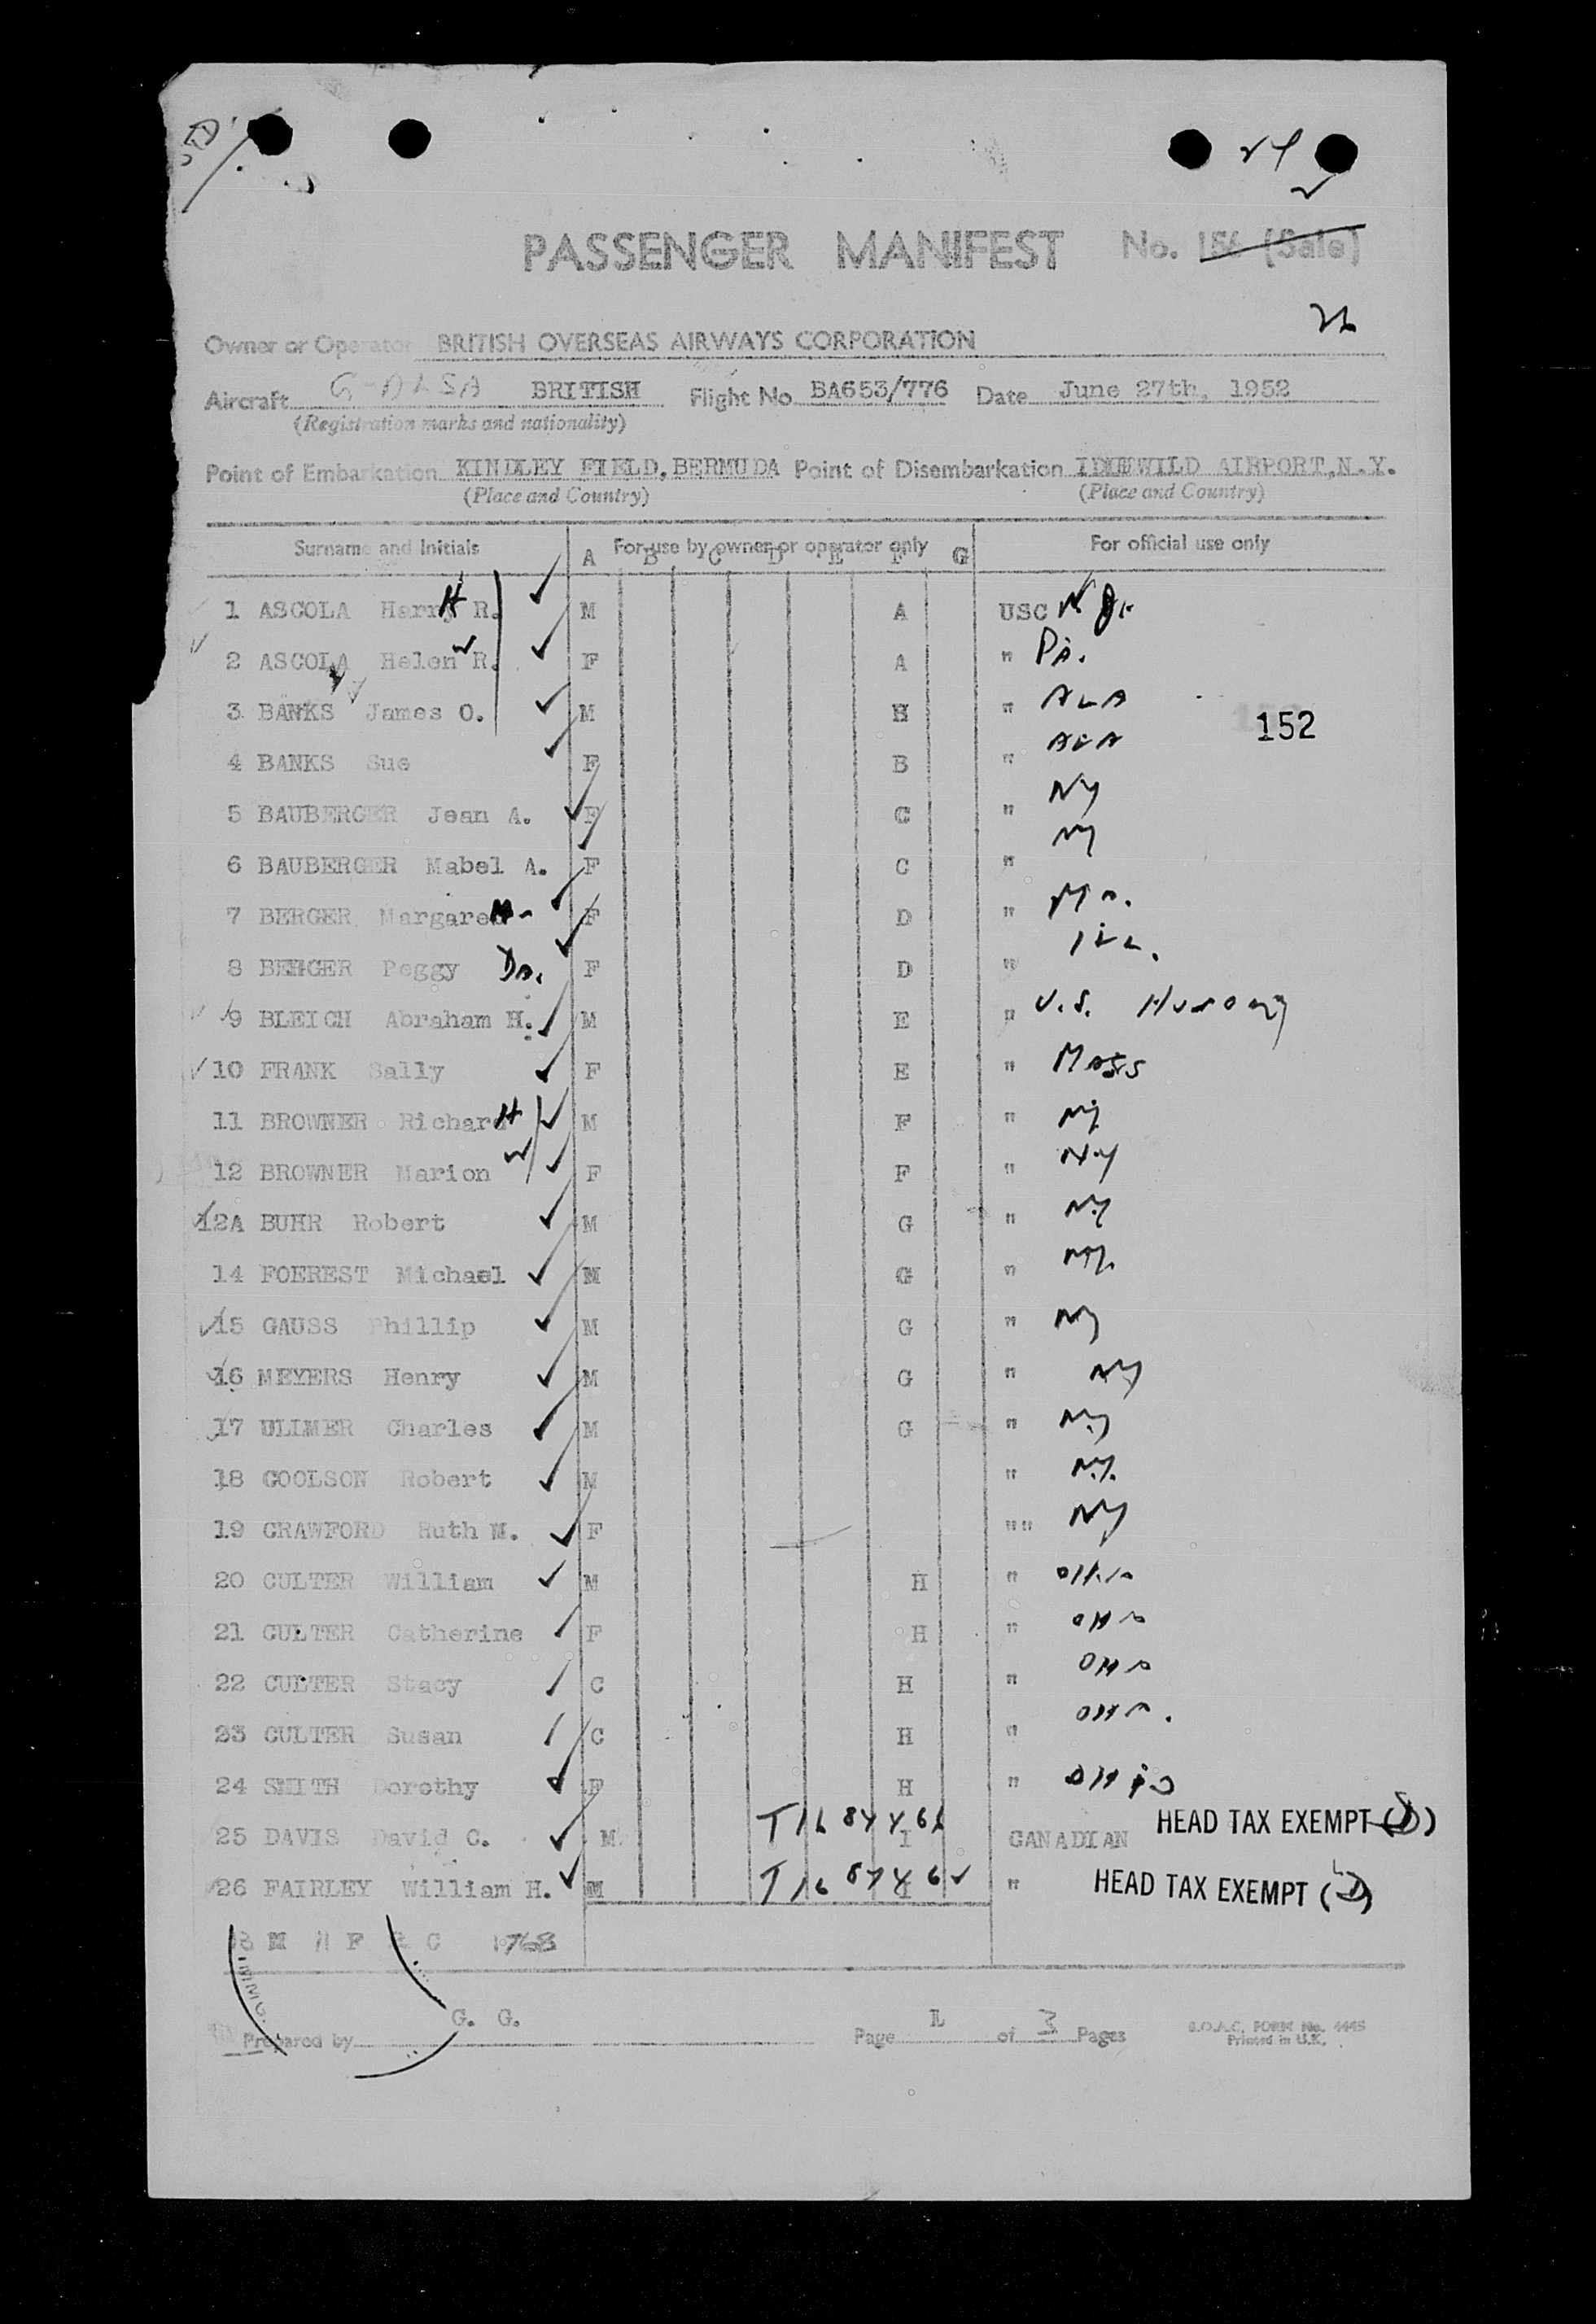 24
PASSENGER MANIFEST No. 156 (Sale)
Owner or Operator BRITISH OVERSEAS AIRWAYS CORPORATION
Aircraft G-ALSA BRITISH Flight No. BA653/776 Date June 27th, 1952
(Registration marks and nationality)
Point of Embarkation KINDLEY FIELD, BERMUDA Point of Disembarkation IDLEWILD AIRPORT, N.Y.
(Place and Country) (Place and Country)
Surname and Initials For use by owner or operator only For official use only
A B C D E F G
1 ASCOLA Harry R. H M A USC N.J.
2 ASCOLA Helen R. W F A " Pa.
3 BANKS James O. M H " ALA
152
4 BANKS Sue F B " ALA
5 BAUBERGER Jean A. F C " NY
6 BAUBERGER Mabel A. F C " NY
7 BERGER Margaret M- F D "
8 BERGER Peggy Da. F D " ILL.
9 BLEICH Abraham H. M E " U.S. Hungary
10 FRANK Sally F E " Mass
11 BROWNER Richard H M F " NY
12 BROWNER Marion W F F " N.Y
12A BUHR Robert M G " NY
14 FOEREST Michael M G " NY.
15 GAUSS Phillip M G " NY
16 MEYERS Henry M G " NY
17 ULLMER Charles M G " NY
18 COOLSON Robert M " NY.
19 CRAWFORD Ruth M. F "" NY
20 CULTER William M H " OHIO
21 CULTER Catherine F H " OHIO
22 CULTER Stacy C H " OHIO
23 CULTER Susan C H " OHIO.
24 SMITH Dorothy F H " OHIO
25 DAVIS David C. M I CANADIAN HEAD TAX EXEMPT (D)
26 FAIRLEY William H. M I " HEAD TAX EXEMPT (D)
M F C 1768
IMMG.
Prepared by G. G. Page 1 of 3 Pages
B.O.A.C. FORM No. 4445
Printed in U.K.